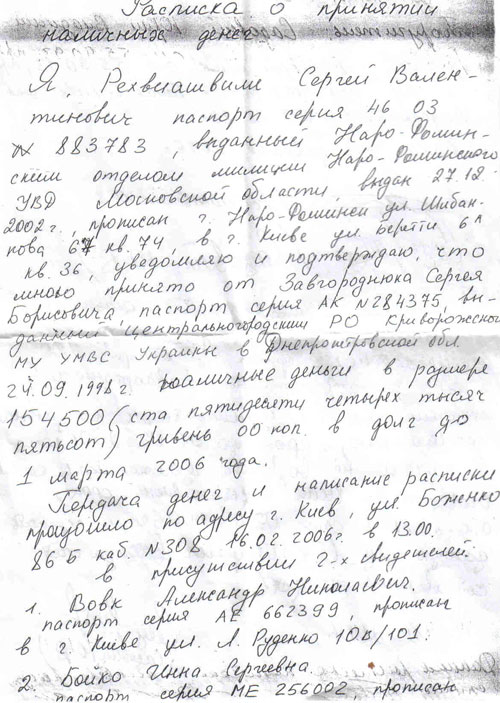 Расписка о принятии
наличных денег
Я, Рехвиашвили Сергей Вален-
тинович паспорт серия 46 03
№ 883783, выданный Наро-Фомин-
ским отделом милиции Наро-Фоминского
УВД Московской области, выдан 27.12.
2002 г., прописан г. Наро-Фоминск ул. Шибан-
кова 67 кв. 74, в г. Киеве ул. Верети 6А
кв. 36, уведомляю и подтверждаю, что
мною принято от Завгороднюка Сергея
Борисовича, паспорт серия АК №284375, вы-
данный Центральногородским РО Криворожского
МУ УМВС Украины в Днепропетровской обл
24.09.1998 г. наличные деньги в размере
154500 (ста пятидесяти четырех тысяч
пятьсот) гривень 00 коп. в долг до
1 марта 2006 года.
Передача денег и написание расписки
произошло по адресу г. Киев, ул. Боженко
86 Б каб. №308 16.02.2006г. в 13.00.
в присутствии 2-х свидетелей.
1. Вовк Александр Николаевич.
паспорт серия АЕ 662399, прописан
в г. Киеве ул. Л. Руденко 10в/101.
2. Бойко Инна Сергеевна.
паспорт серия МЕ 256002, прописан